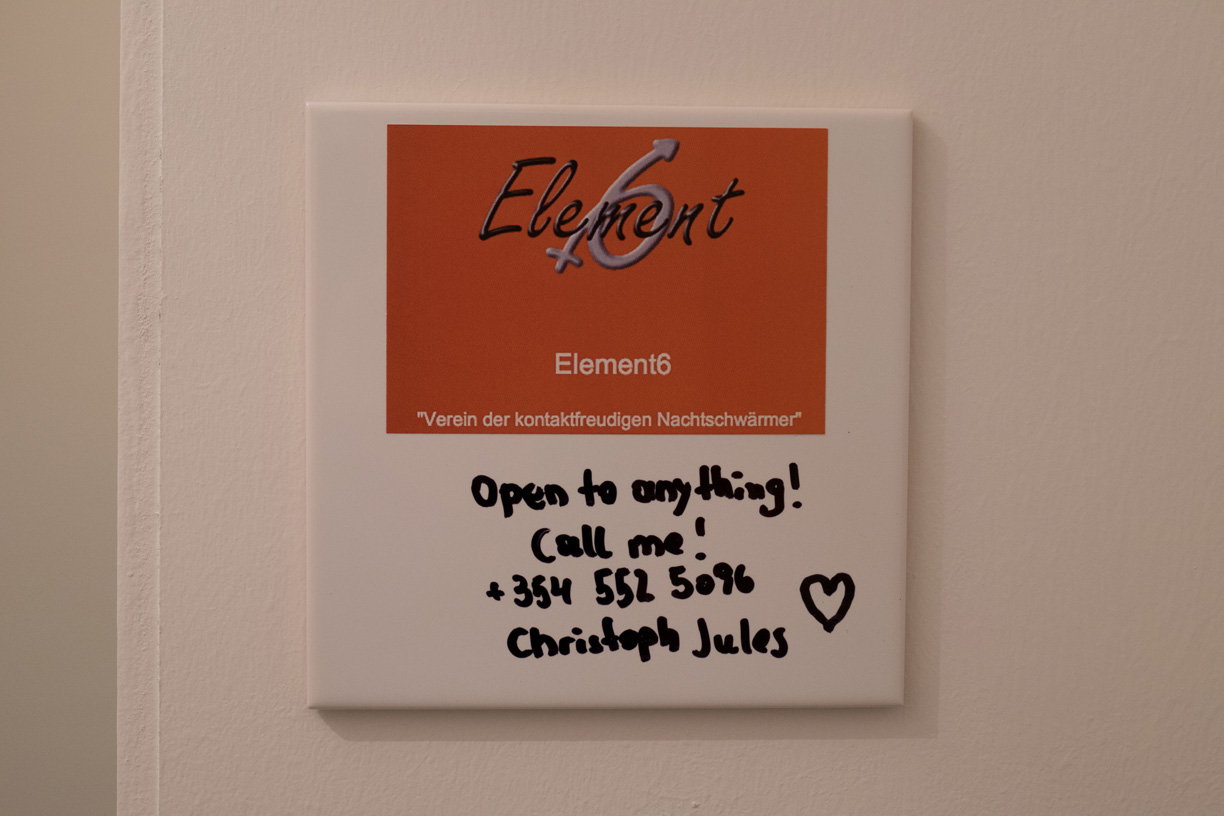 Element
6
Element6
"Verein der kontaktfreudigen Nachtschwärmer"
Open to anything!
Call me!
+354 552 5096
Christoph Jules